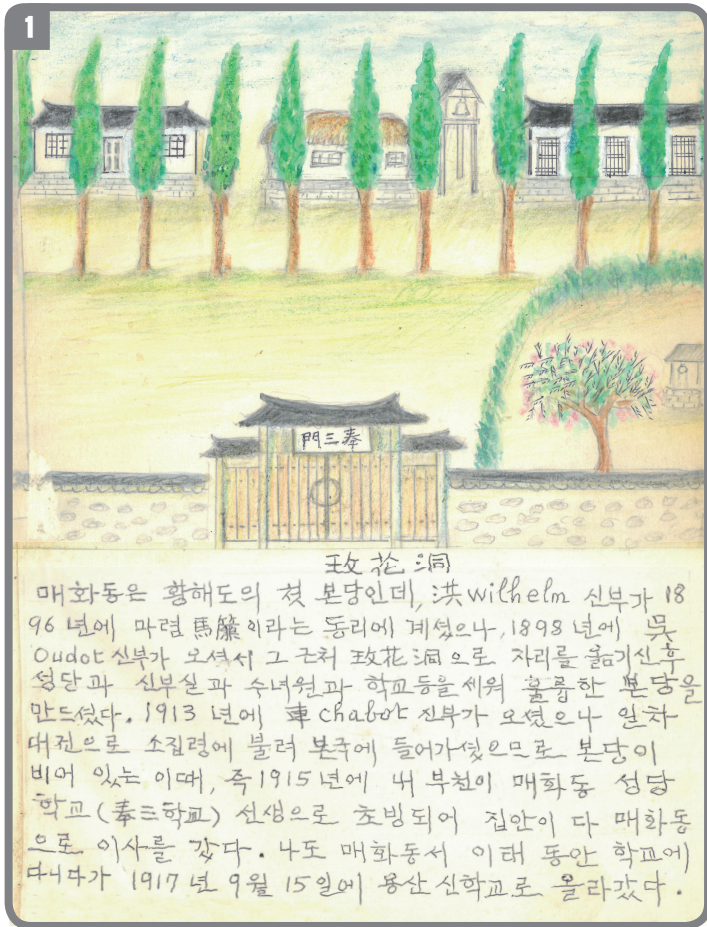 1
門三奉
玫花洞
매화동은 황해도의 첫 본당인데, 洪wilhelm 신부가 18
96년에 마렴 馬簾이라는 동리에 계셨으나, 1898년에 吳
oudot 신부가 오셔서 그 근처 玫花洞으로 자리를 옮기신후
성당과 신부실과 수녀원과 학교등을 세워 훌륭한 본당을
만드셨다. 1913년에 車chabot 신부가 오셨으나 일차
대전으로 소집령에 불려 본국에 들어가셨으므로 본당이
비어 있는 이때, 즉 1915년에 내 부친이 매화동 성당
학교(奉三학교) 선생으로 초빙되어 집안이 다 매화동
으로 이사를 갔다. 나도 매화동서 이태 동안 학교에
다니다가 1917년 9월 15일에 용산 신학교로 올라갔다.